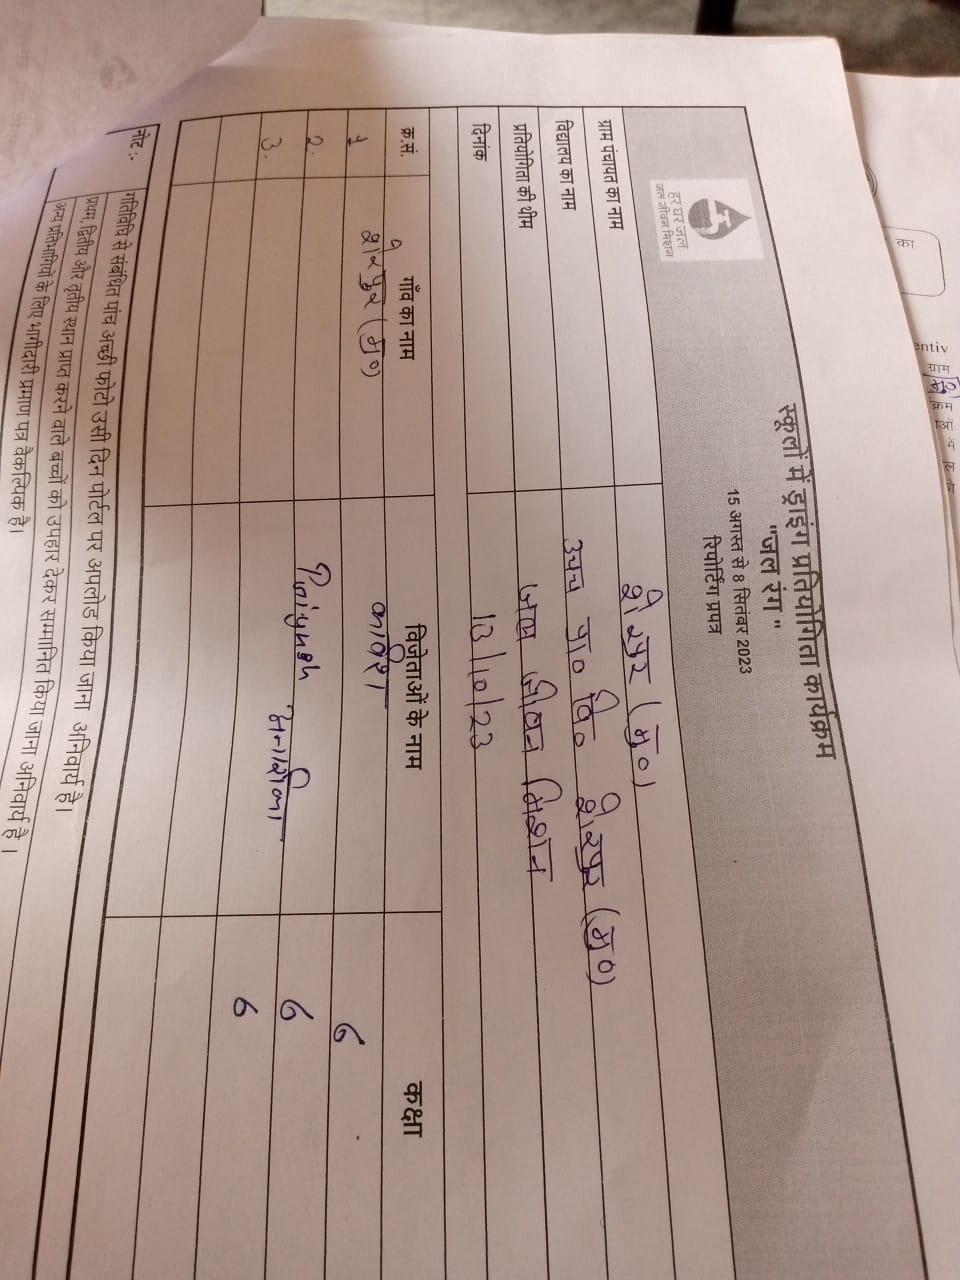 हर घर जल
जल जीवन मिशन
स्कूलों में ड्राइंग प्रतियोगिता कार्यक्रम
"जल रंग"
15 अगस्त से 8 सितंबर 2023
रिपोर्टिंग प्रपत्र
ग्राम पंचायत का नाम शेरपुर (मु०)
विद्यालय का नाम उच्च प्रा० वि० शेरपुर (मु०)
प्रतियोगिता की थीम जल जीवन मिशन
दिनांक 13/10/23
क्र.सं. गाँव का नाम विजेताओं के नाम कक्षा
1 शेरपुर (मु०) 6
2. 6
3. 6
नोट :- गतिविधि से संबंधित पांच अच्छी फोटो उसी दिन पोर्टल पर अपलोड किया जाना अनिवार्य है।
प्रथम, द्वितीय और तृतीय स्थान प्राप्त करने वाले बच्चों को उपहार देकर सम्मानित किया जाना अनिवार्य है।
अन्य प्रतिभागियों के लिए भागीदारी प्रमाण पत्र वैकल्पिक है।
का
entiv
ग्राम
क्रम